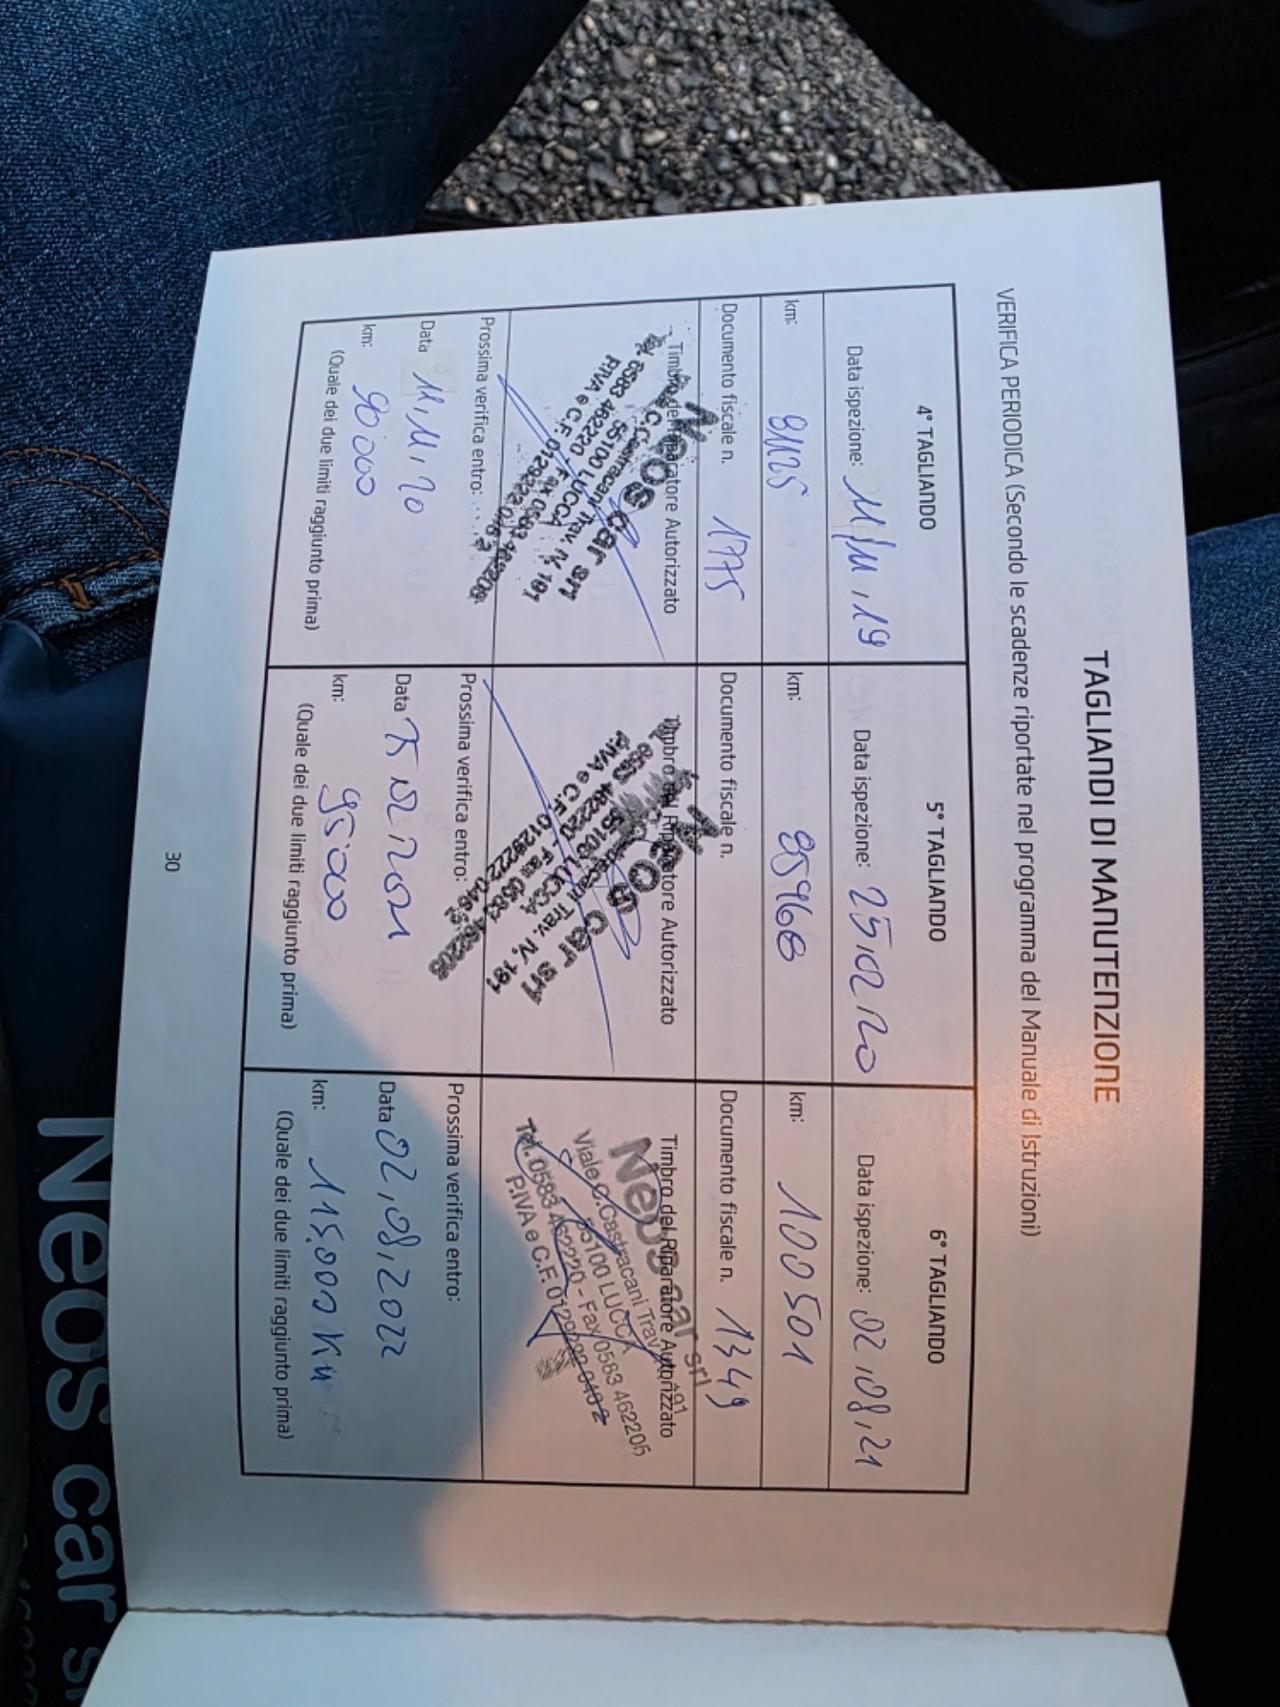 TAGLIANDI DI MANUTENZIONE
VERIFICA PERIODICA (Secondo le scadenze riportate nel programma del Manuale di Istruzioni)
4° TAGLIANDO
Data ispezione: 11/11,19
km: 81125
Documento fiscale n. 1775
Timbro del Riparatore Autorizzato
Neos car srl
V.le C. Castracani Trav. IV, 191
55100 LUCCA
0583 462220 Fax 0583 462205
P.IVA e C.F.
Prossima verifica entro:
Data 11,11,20
km: 90000
(Quale dei due limiti raggiunto prima)
5° TAGLIANDO
Data ispezione: 25,02,20
km: 85968
Documento fiscale n.
Timbro del Riparatore Autorizzato
Neos car srl
Castracani Trav. IV, 191
55100 LUCCA
0583 462220 - Fax 0583 462205
P.IVA e C.F.
Prossima verifica entro:
Data 25,02,2021
km: 95000
(Quale dei due limiti raggiunto prima)
6° TAGLIANDO
Data ispezione: 02,08,21
km: 100501
Documento fiscale n. 1349
Timbro del Riparatore Autorizzato
Neos car srl
Viale C. Castracani Trav. 191
55100 LUCCA
Tel. 0583 462220 - Fax 0583 462205
P.IVA e C.F.
Prossima verifica entro:
Data 02,08,2022
km: 115.000 Km
(Quale dei due limiti raggiunto prima)
30
Neos car s